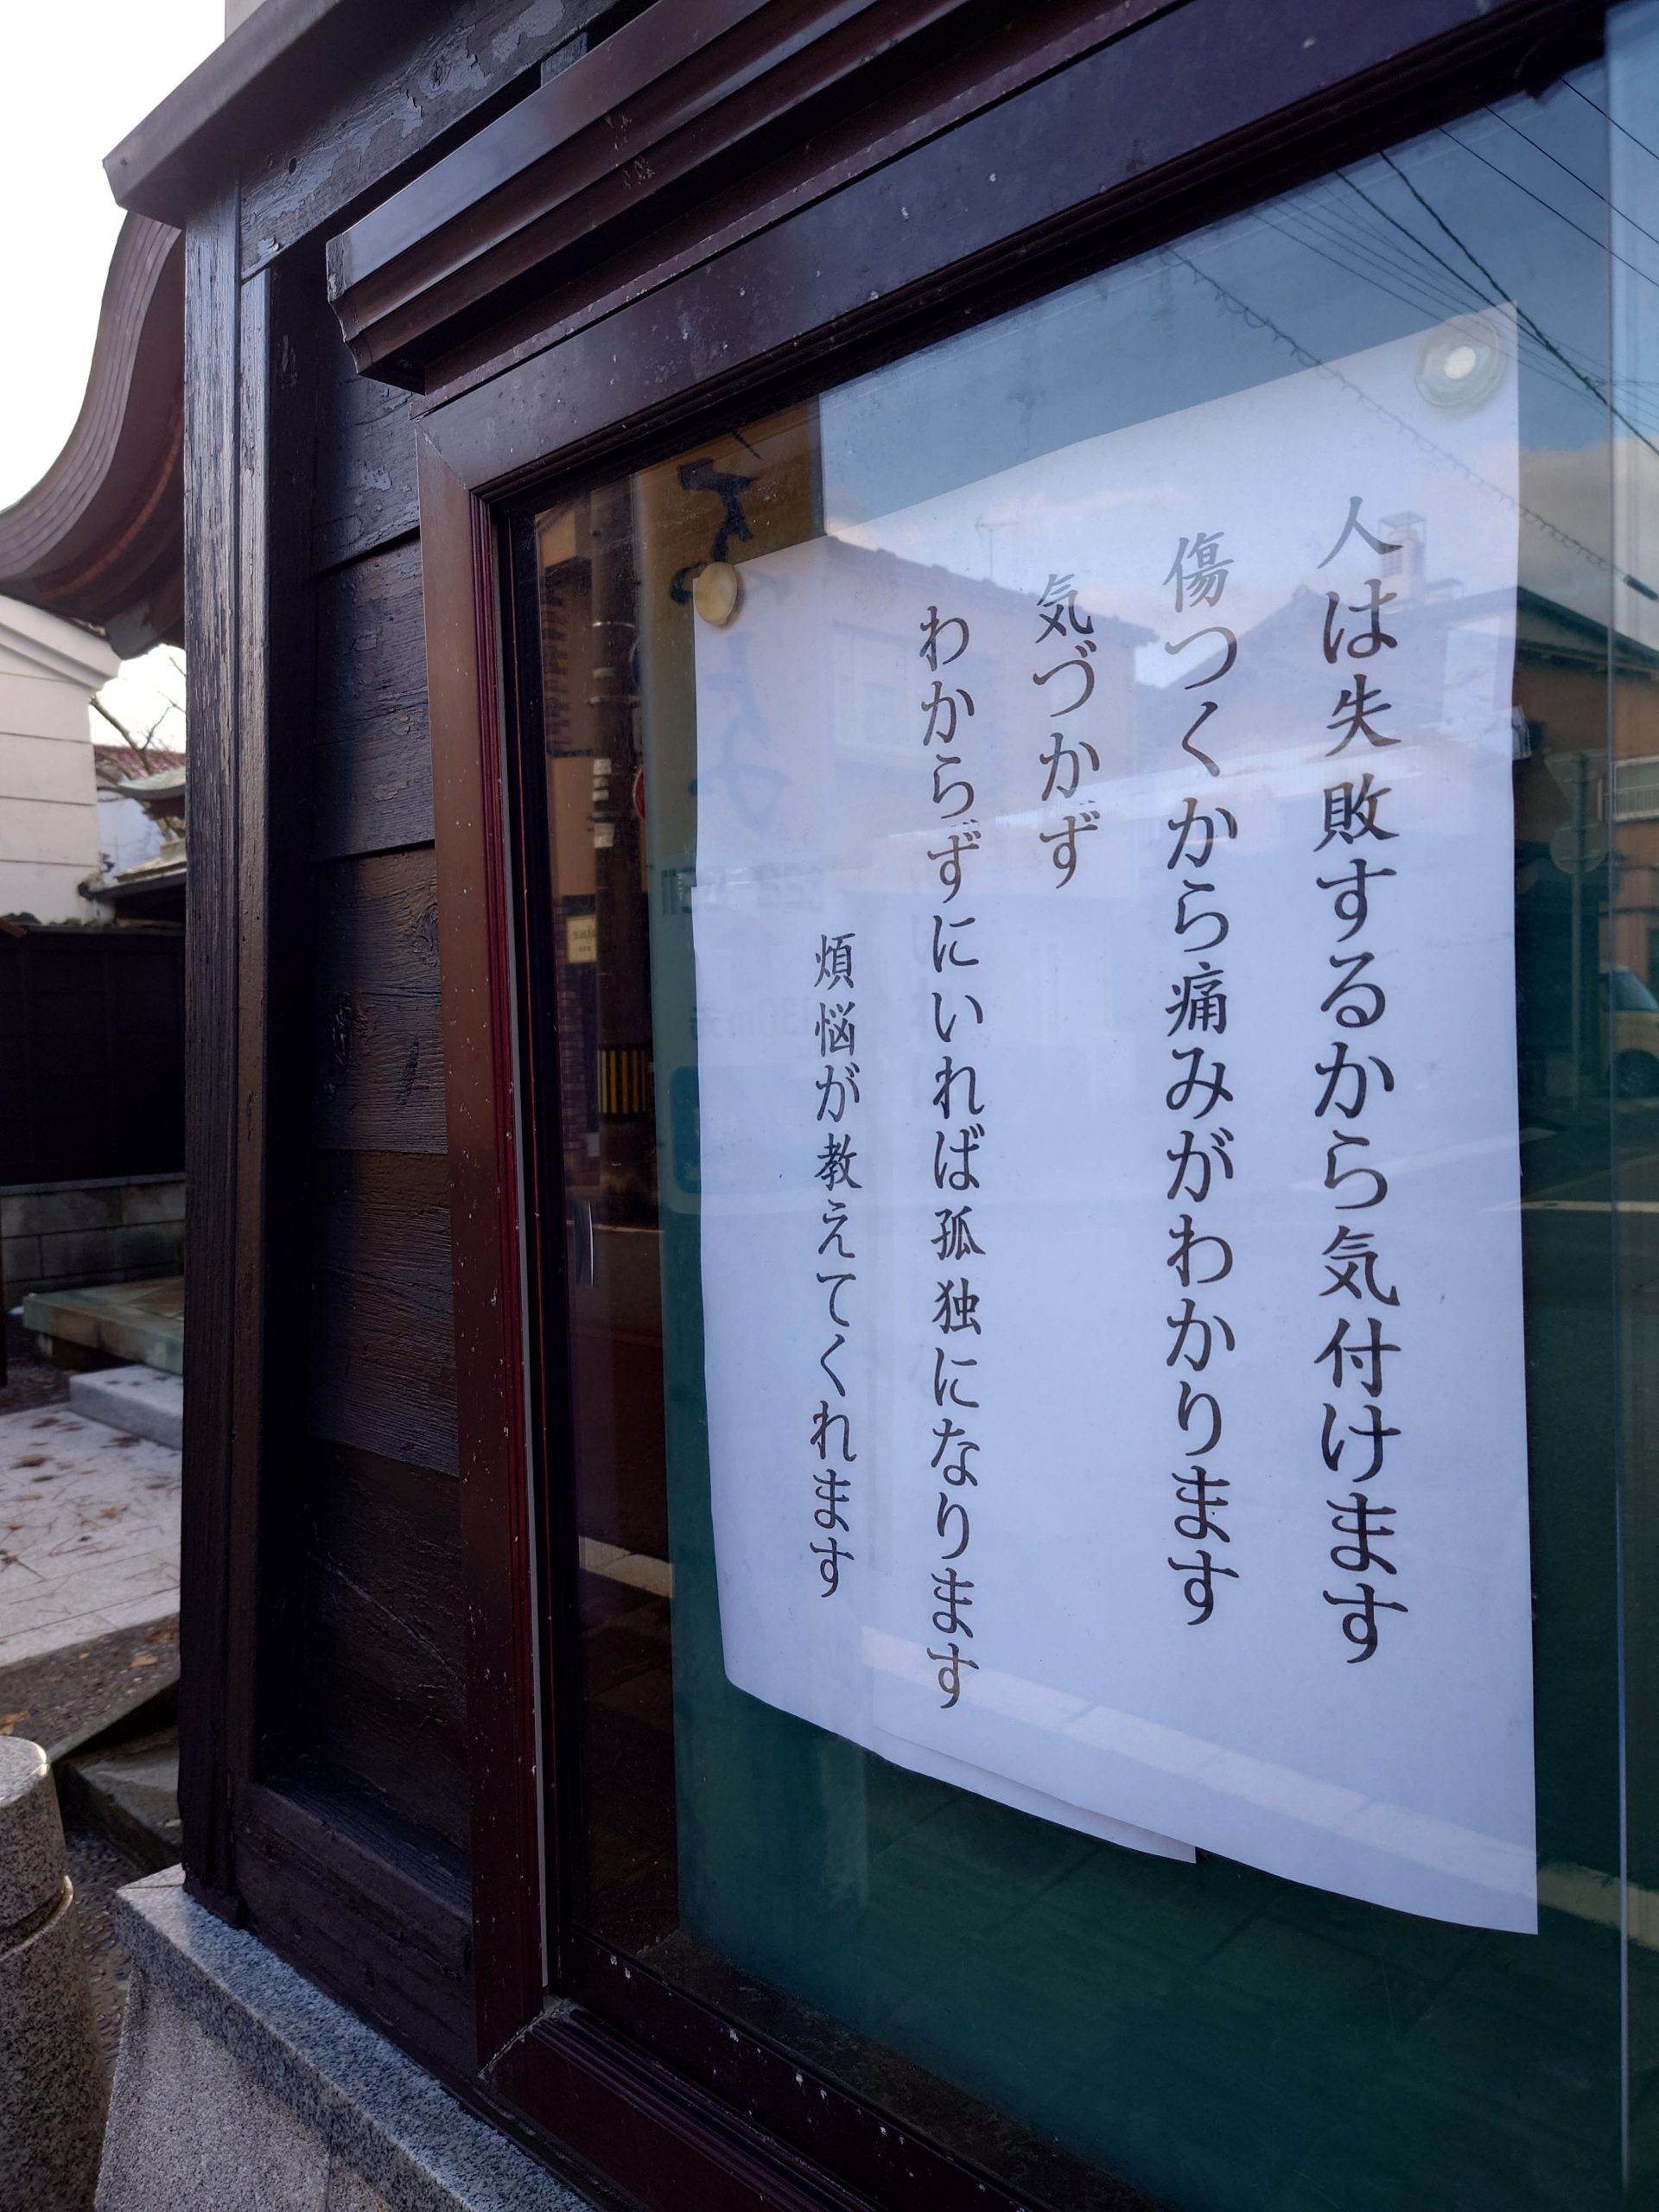 人は失敗するから気付けます
傷つくから痛みがわかります
気づかず
わからずにいれば孤独になります
煩悩が教えてくれます